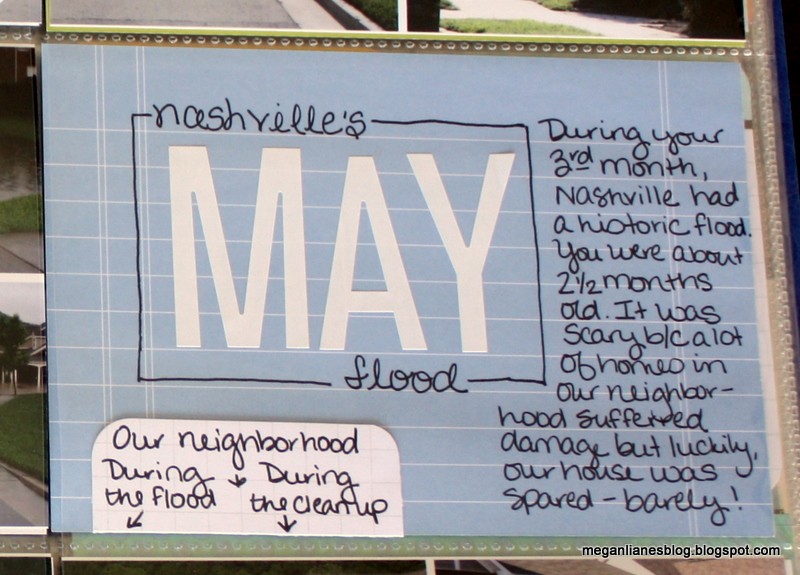 nashville's
MAY
flood
During your
3rd month,
Nashville had
a historic flood.
You were about
2 1/2 months
old. It was
scary b/c a lot
of homes in
our neighbor-
hood sufferred
damage but luckily,
our house was
spared - barely!
Our neighborhood
During ↓ During
the flood the cleanup
↙ ↓
meganlianesblog.blogspot.com